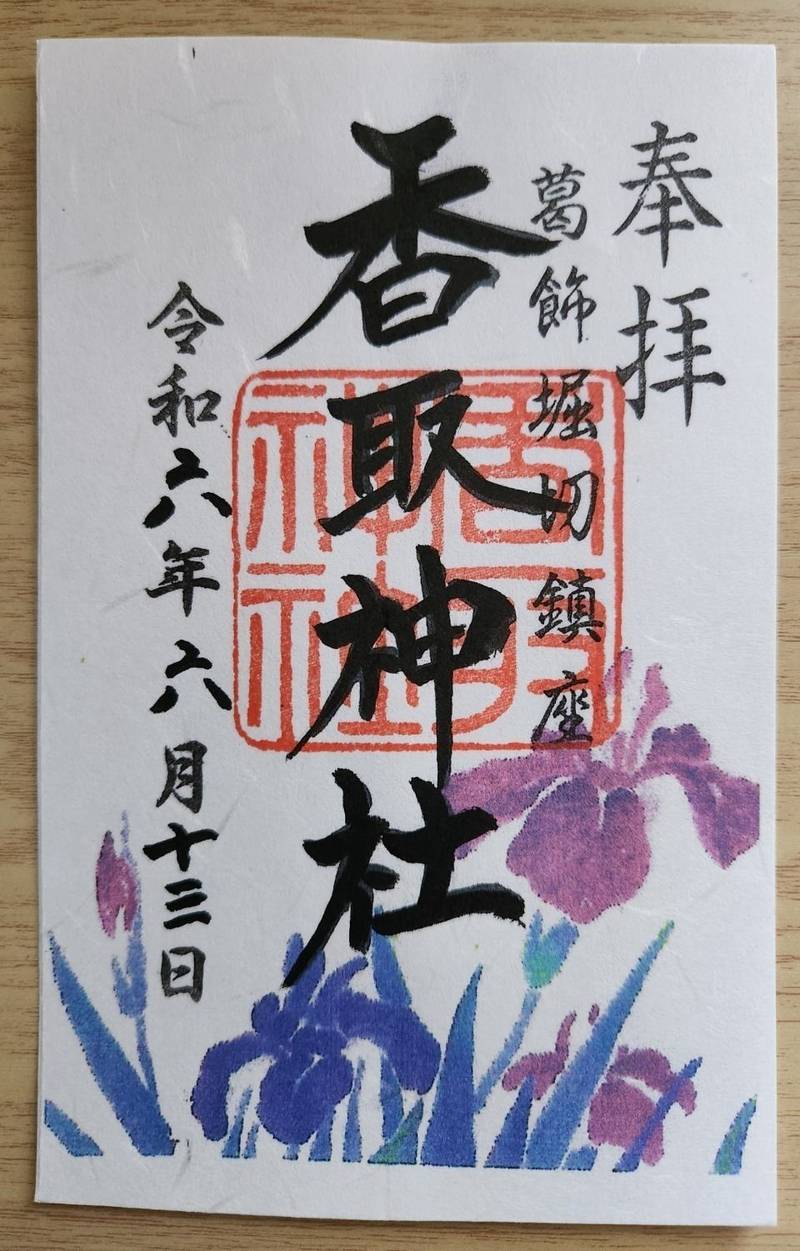 奉拝
葛飾堀切鎮座
香取神社
香取神社
令和六年六月十三日